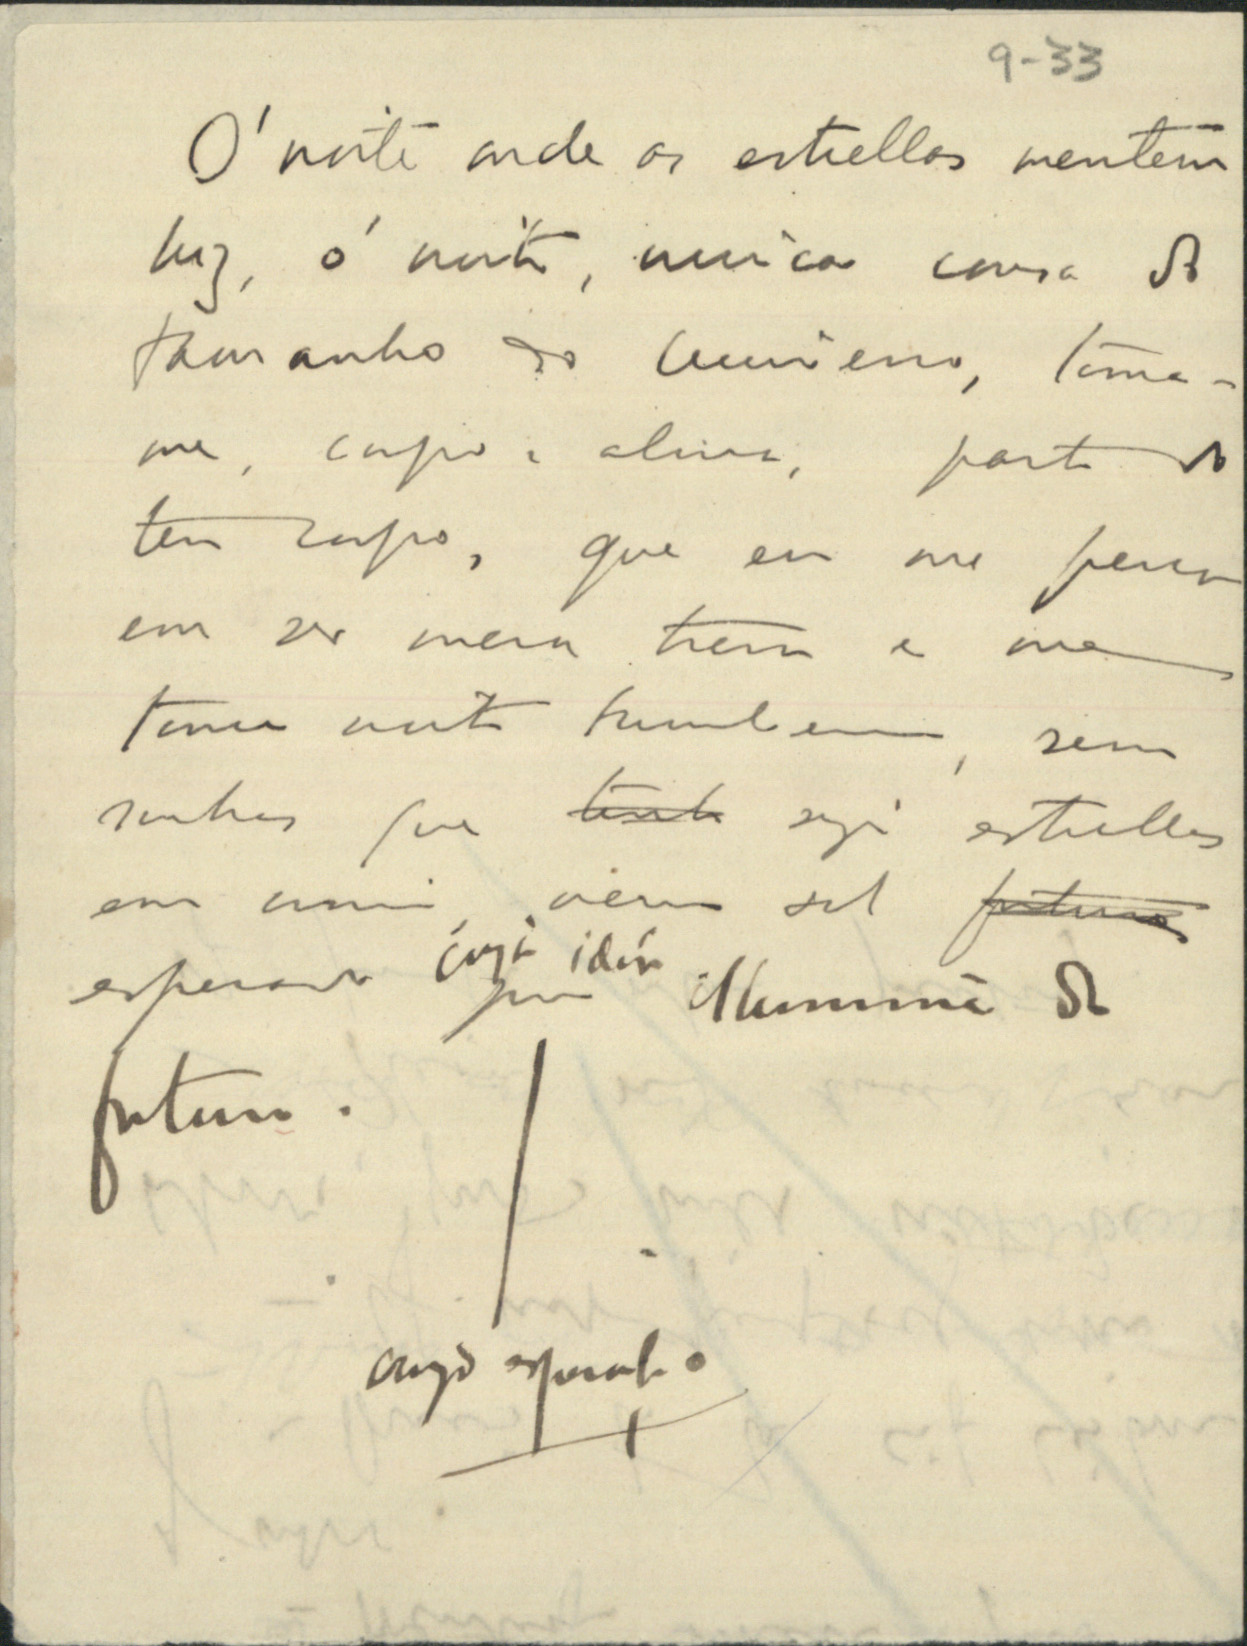 9-33
Ó noite onde as estrellas mentem
luz, ó noite, unica cousa do
tamanho do Universo, torna-
me, corpo e alma, parte do
teu corpo, que eu me perca
em ser mera treva e me
torne noite tambem, sem
sonhos que sejam estrellas
em mim, nem sol futuro
cuja
esperado que illumine do
futuro.
cujo esperal-o